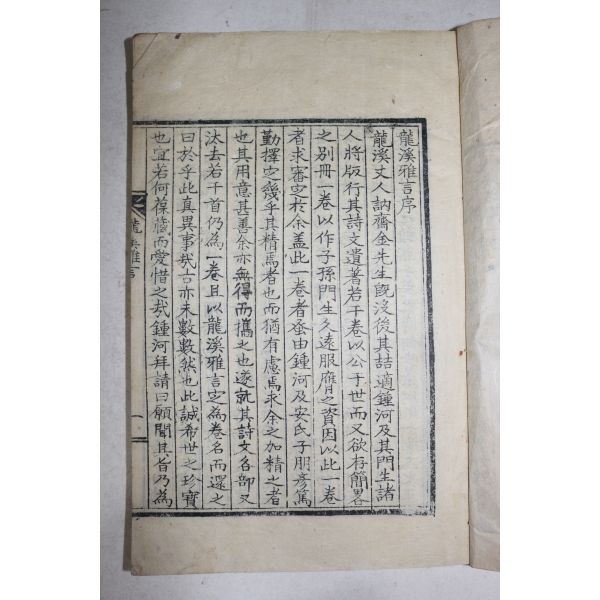 龍溪雅言序
龍溪丈人訥齋金先生旣沒後其喆適鍾河及其門生諸
人將版行其詩文遺著若干卷以公于世而又欲存簡畧
之別冊一卷以作子孫門生久遠服膺之資因以此一卷
者求審定於余盖此一卷者蚤由鍾河及安氏子朋彦篤
勤擇定幾乎其精焉者也而猶有慮焉求余之加精之者
也其用意甚善余亦無得而攜之也遂就其詩文各部又
汰去若干首仍為一卷且以龍溪雅言定為卷名而還之
曰於乎此真異事哉古亦未數數然也此誠希世之珍寶
也宜若何葆藏而愛惜之哉鍾河拜請曰願聞其旨乃為
龍溪雅言
一